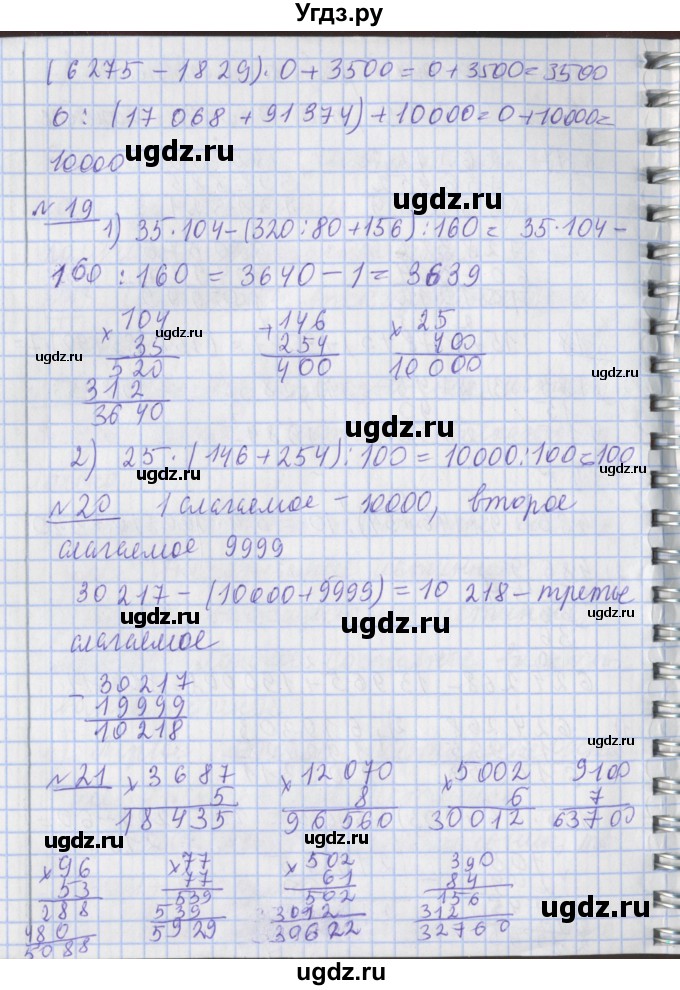 Угдз.ру
(6275 - 1829)·0 + 3500 = 0 + 3500 = 3500
0 : (17 068 + 91 374) + 10000 = 0 + 10000 =
10000
ugdz.ru
ugdz.ru
№ 19
1) 35·104 - (320 : 80 + 156) : 160 = 35·104 -
160 : 160 = 3640 - 1 = 3639
ugdz.ru
ugdz.ru
× 104
35
520
312
3640
+ 146
254
400
× 25
400
10000
ugdz.ru
ugdz.ru
ugdz.ru
ugdz.ru
2) 25·(146 + 254) : 100 = 10000 : 100 = 100
ugdz.ru
ugdz.ru
№ 20 1 слагаемое - 10000, второе
слагаемое 9999
ugdz.ru
ugdz.ru
30217 - (10000 + 9999) = 10 218 - третье
ugdz.ru
ugdz.ru
ugdz.ru
слагаемое
- 30217
19999
10218
ugdz.ru
ugdz.ru
№ 21
× 3687
5
18435
× 12 070
8
96560
× 5002
6
30012
9100
7
63700
ugdz.ru
ugdz.ru
ugdz.ru
× 96
53
288
480
5088
× 77
77
539
539
5929
× 502
61
502
3012
30622
390
84
156
312
32760
ugdz.ru
ugdz.ru
ugdz.ru
ugdz.ru
ugdz.ru